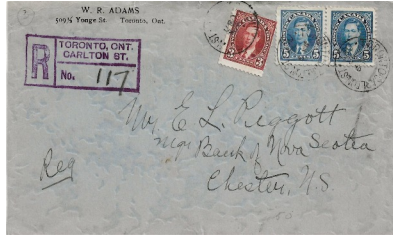 W. R. ADAMS
509½ Yonge St. Toronto, Ont.
R
TORONTO, ONT.
CARLTON ST.
No. 117
3
5 5
Mr E L Piggott
Bank of Nova Scotia
Chester, N.S
Reg